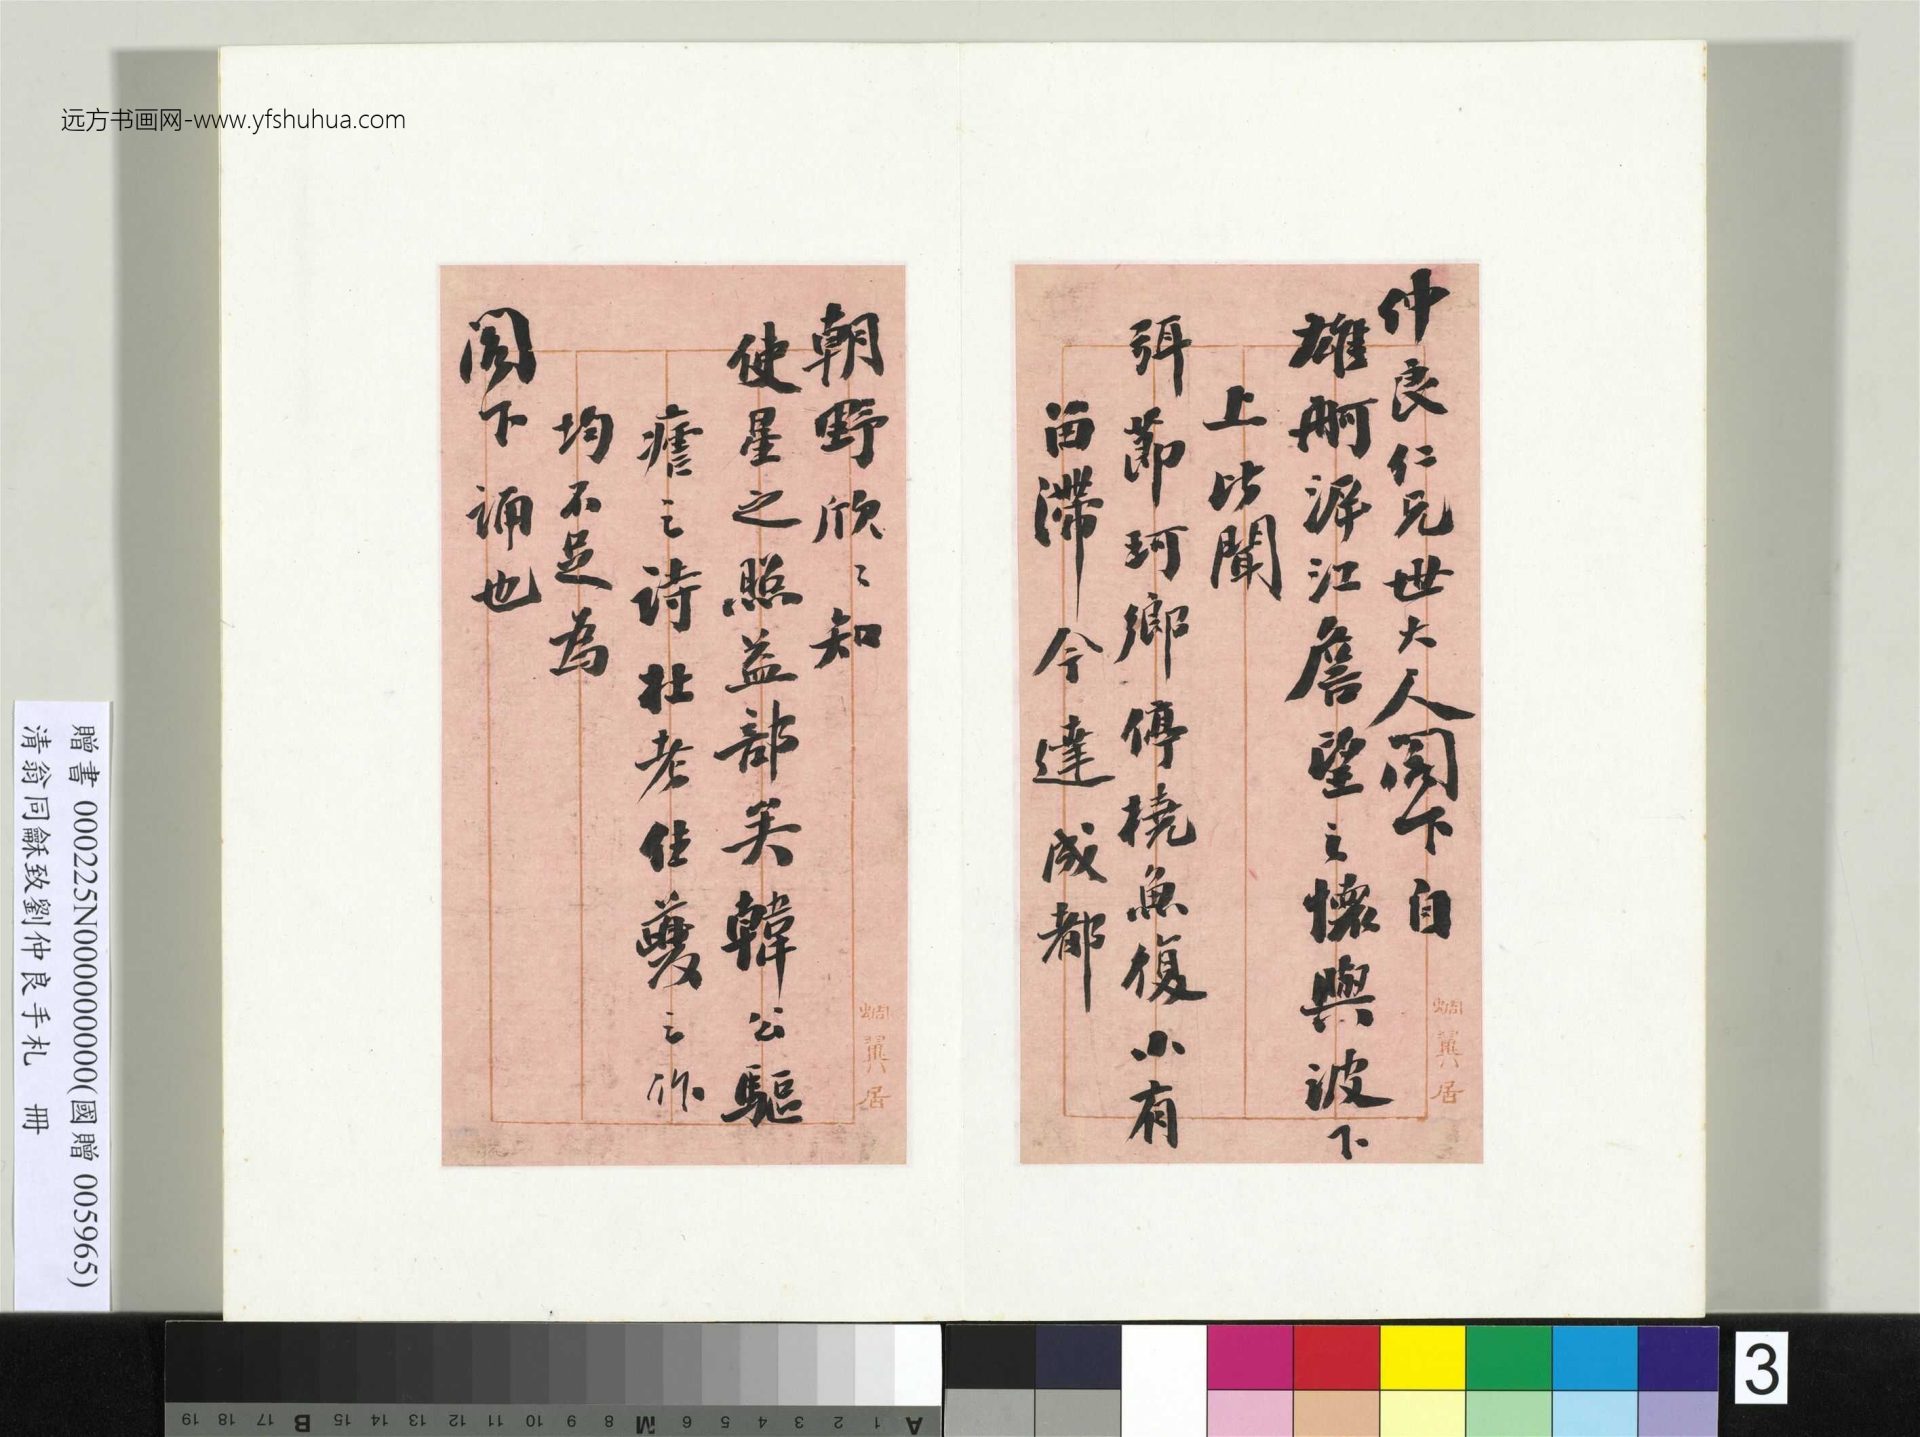 远方书画网-www.yfshuhua.com
仲良仁兄世大人閣下自
雄舸泝江詹望之懷與波下
上比聞
弭節珂鄉停橈魚復小有
留滯今達成都
蜩翼居
朝野欣〻知
使星之照益部矣韓公驅
瘧之詩杜老住夔之作
均不足為
閣下誦也
蜩翼居
贈書 000225N000000000(國贈 005965)
清翁同龢致劉仲良手札 冊
3
A 1 2 3 4 5 6 M 8 9 10 11 12 13 14 15 B 17 18 19